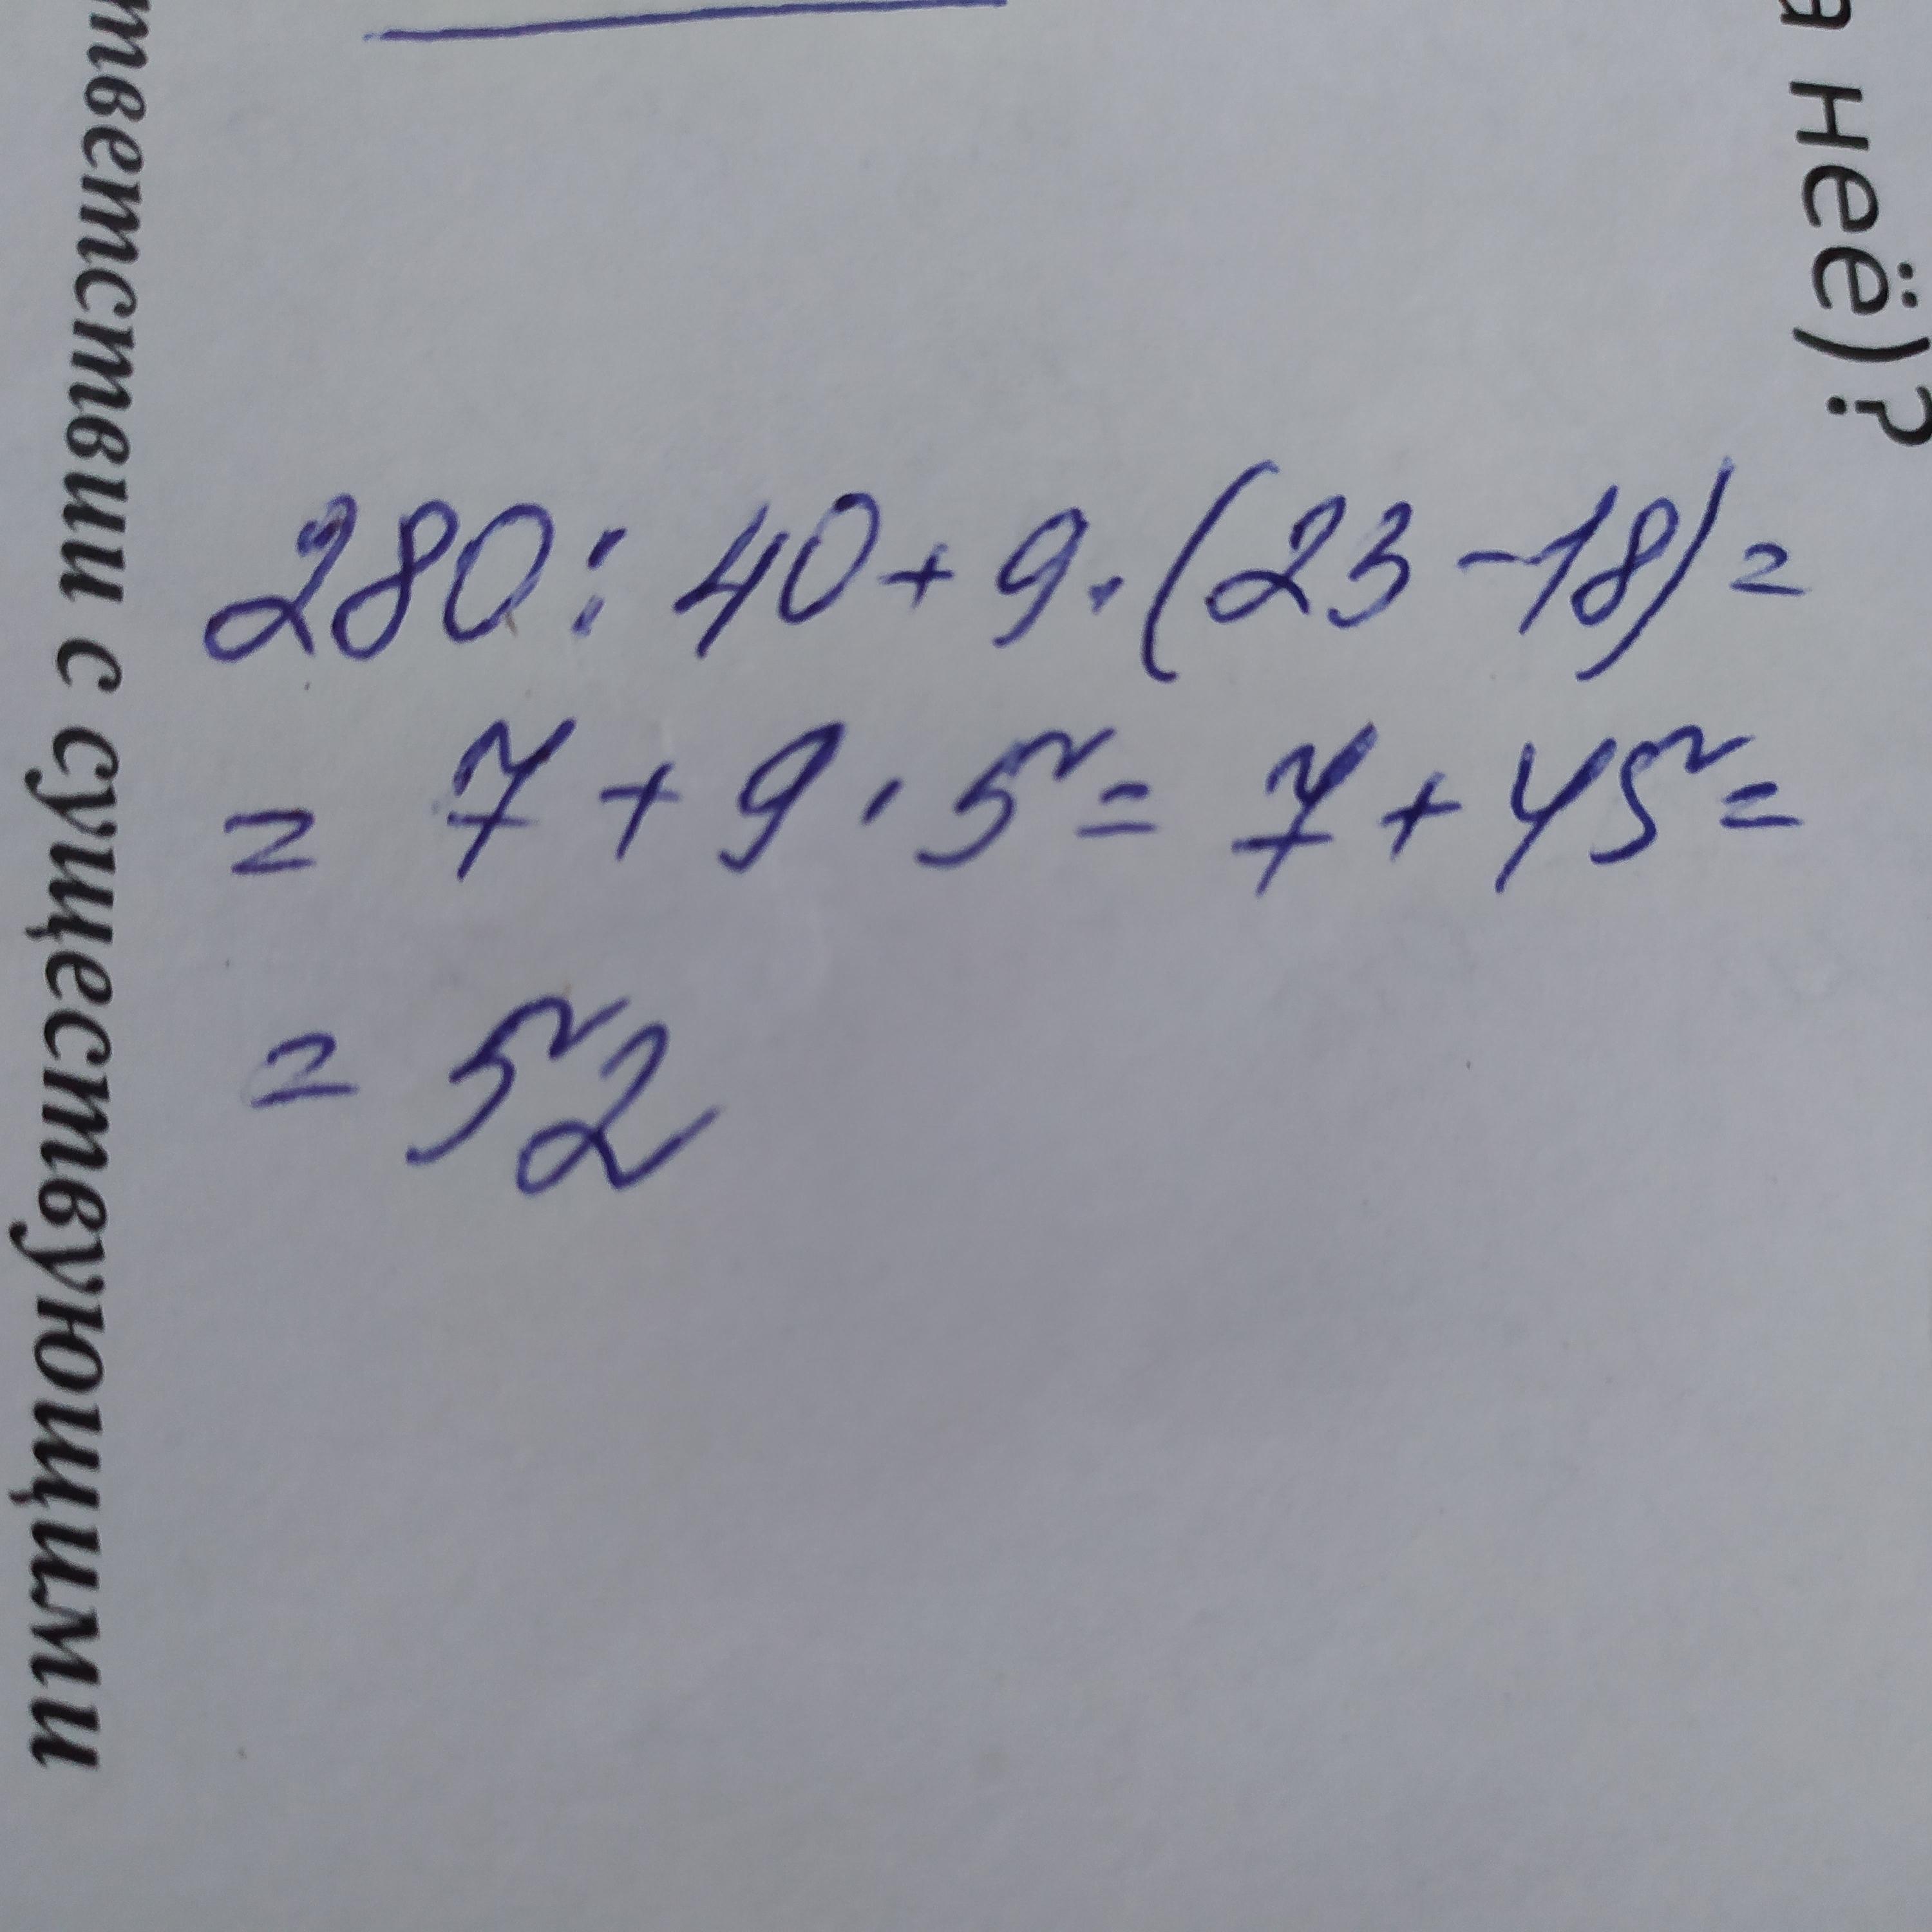 280 : 40 + 9 · (23 - 18) =
= 7 + 9 · 5 = 7 + 45 =
= 52
а неё)?
тветствии с существующими